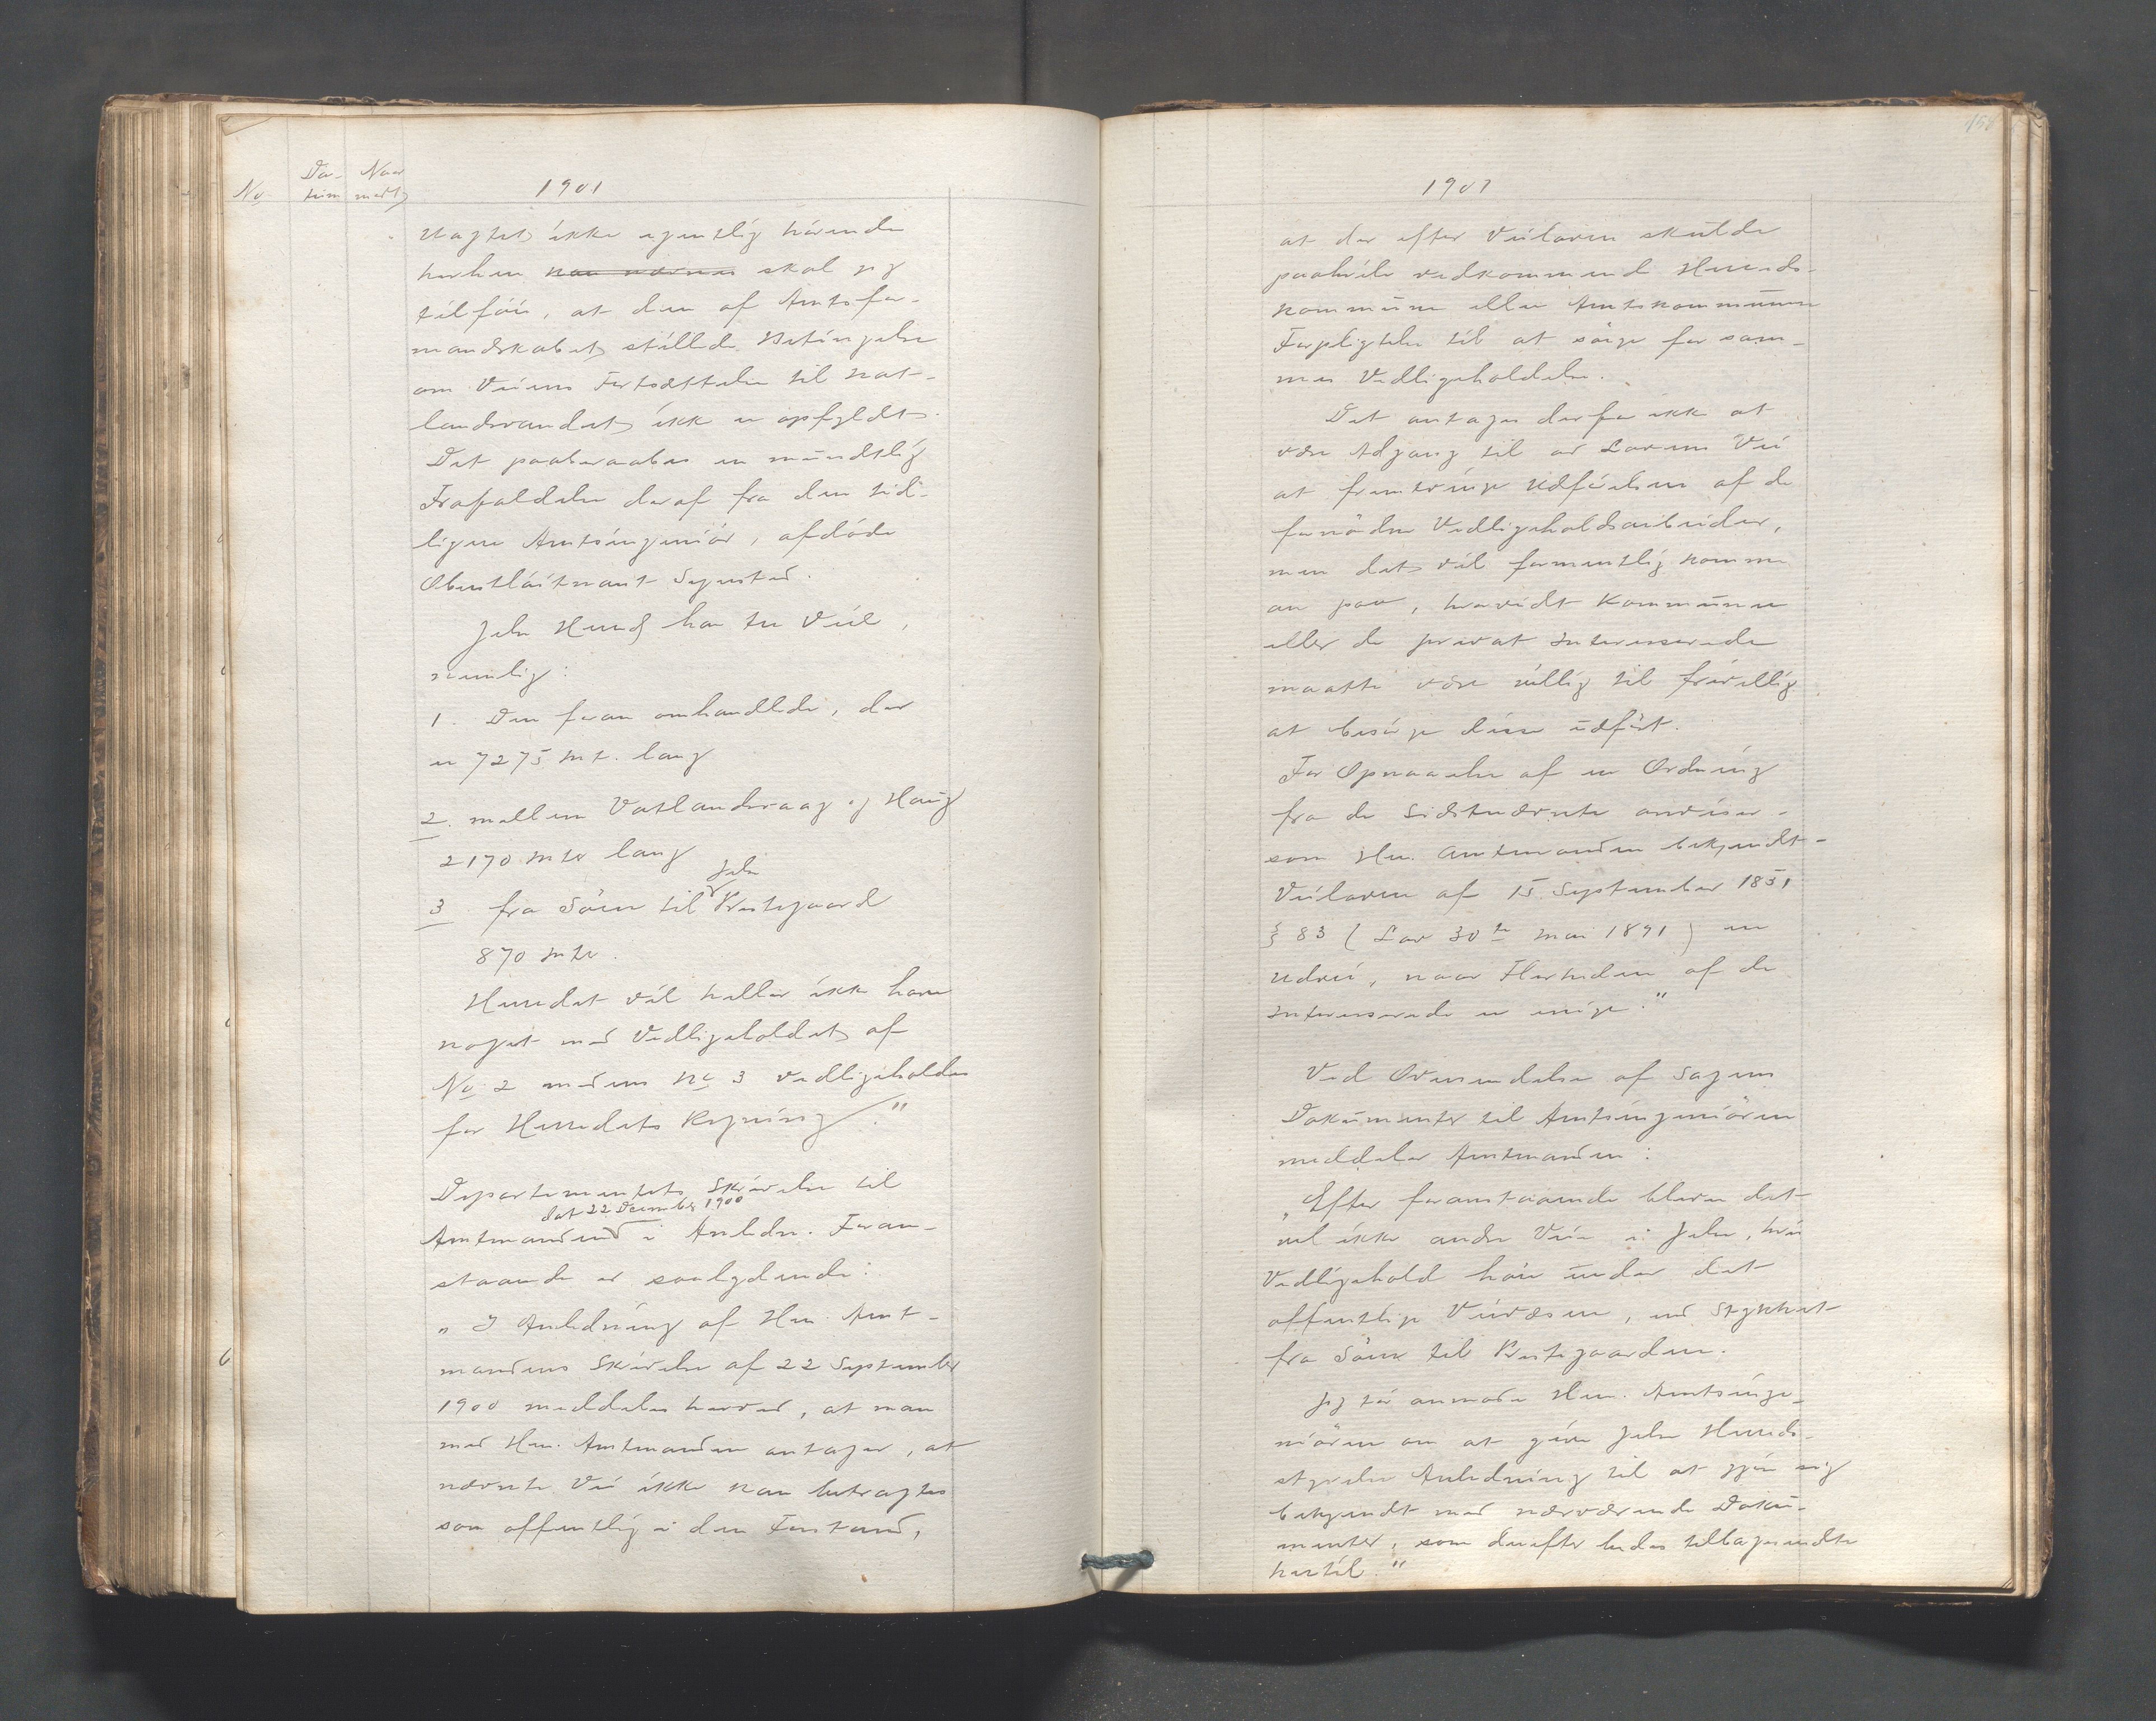 No Da- Naar
tum modt
1901
Uagtet ikke egentlig hörende
herhen kan nævnes skal jeg
tilföie, at den af Amtsfor-
mandskabet stillede Betingelse
om Veiens Fortsættelse til Hat-
landsvandet ikke er opfyldt.
Det paaberaabes en mundtlig
Frafaldelse deraf fra den tid-
ligere Amtsingeniör, afdöde
Oberstlöitnant Sejersted.
Jelse Herred har tre Veie,
nemlig:
1. Den foran omhandlede, der
er 7275 mt. lang
2. mellem Vatlandsvaag og Haug
2170 mtr lang
3 fra Söen til Jelse Prestegaard
870 mtr.
Herredet vil heller ikke have
noget med Vedligeholdet af
No 2 medens No 3 vedligeholdes
for Herredets Regning."
Departementets Skrivelse til
dat 22 December 1900
Amtmanden i Anledn. Foran-
staaende er saalydende:
"I Anledning af Hr. Amt-
mandens Skrivelse af 22 September
1900 meddeles herved, at man
med Hr. Amtmanden antager, at
nævnte Vei ikke kan betragtes
som offentlig i den Forstand,
1901
at der efter Veiloven skulde
paahvile vedkommende Herreds-
kommune eller Amtskommunen
Forpligtelse til at sörge for sam-
mes Vedligeholdelse.
Det antages derfor ikke at
være Adgang til ad Lovens Vei
at fremtvinge Udförelsen af de
fornödne Vedligeholdsarbeider,
men det vil formentlig komme
an paa, hvorvidt Kommunen
eller de privat Interesserede
maatte være villig til frivillig
at besörge disse udfört.
For Opnaaelse af en Ordning
fra de Sidstnævnte anviser-
som Hr. Amtmanden bekjendt-
Veiloven af 15 September 1851
§ 83 (Lov 30te Mai 1891) en
Udvei, naar Flerheden af de
Interesserede er enige."
Ved Oversendelse af Sagens
Dokumenter til Amtsingeniören
meddeler Amtmanden:
"Efter foranstaaende bliver det
vel ikke andre Veie i Jelse, hvis
Vedligehold hörer under det
offentlige Veivæsen, end Stykket
fra Söen til Prestegaarden.
Jeg tör anmode Hr. Amtsinge-
niören om at give Jelse Herreds-
styrelse Anledning til at gjöre sig
bekjendt med nærværende Doku-
menter, som derefter bedes tilbagesendte
hertil."